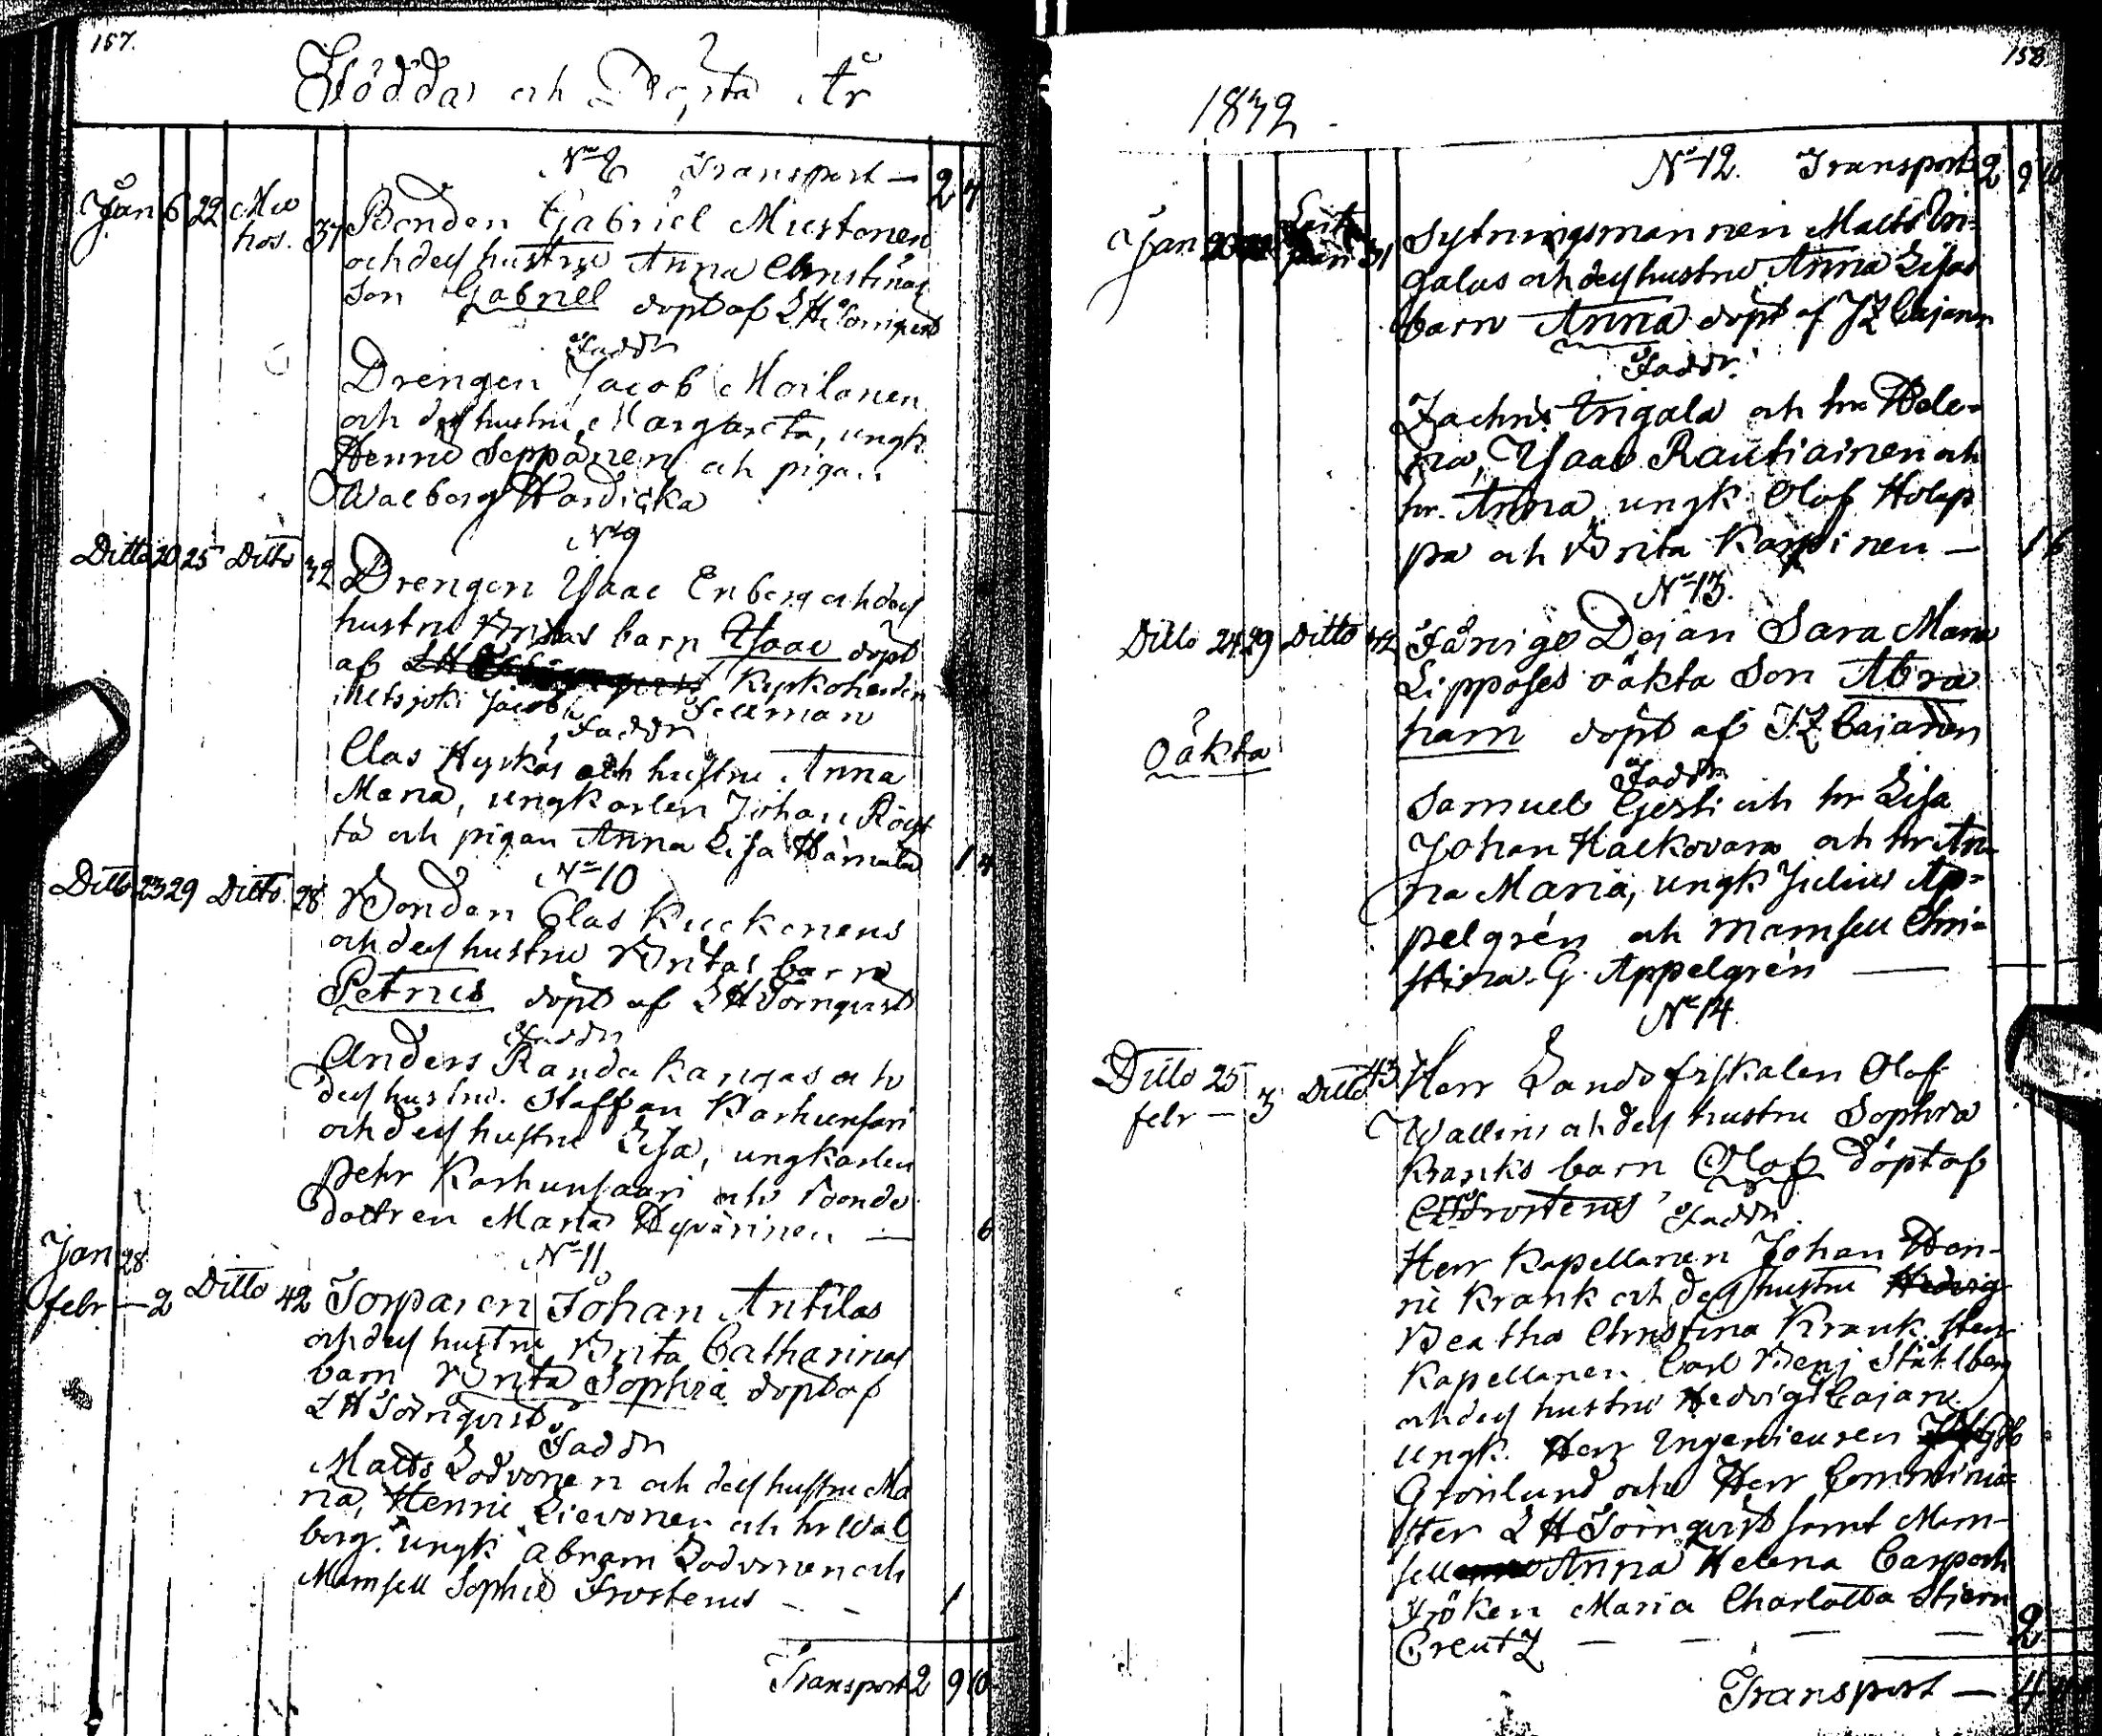 157.
Födda och Döpta År
No 8 Transport — 2 4
Jan 6 22 Mu
hos. 37 Bonden Gabriel Mustonen
och dess hustru Anna Christinas
Son Gabriel döpt af L H Törnqvist
Faddr
Drengen Jacob Moilanen
och dess hustru Margareta, ungk
Henric Seppänen och pigan
Walborg Hardicka
No 9
Ditto 20 25 Ditto 32 Drengen Isaac Enberg och dess
hustru Britas barn Isaac döpt
af Kyrkoherden
Utsjoki Jacob Fellman
Faddr
Clas Hyrkäs och hustru Anna
Maria, ungkarlen Johan Röyt
tä och pigan Anna Lisa Hämälä 1 4
No 10
Ditto 23 29 Ditto 28 Bonden Clas Kuckonens
och dess hustru Britas barn
Petrus döpt af L H Törnqvist
Faddr
Anders Randa kangas och
dess hustru. Staffan Karhunsari
och dess hustru Lisa, ungkarlen
Pehr Karhunsaari och bonde
dottren Maria Hyvärinen — 6
No 11
Jan 28
febr — 2 Ditto 42 Torparen Johan Antilas
och dess hustru Brita Catharinas
barn Brita Sophia döpt af
L H Törnqvist
Faddr
Matts Lodvonen och dess hustru Ma
ria, Henric Lievonen och hr Wal
borg. ungk Abram Lodvonen och
Mamsell Sophie Frosterus — — 1
Transport 2 9 10
158.
1832
No 12. Transport 2 9 10
Jan 31 Sytningsmannen Matts Tri-
galas och dess hustru Anna Lisas
barn Anna döpt af J Z Cajanen
Faddr.
Zachris Trigala och hr Hele-
na, Isaac Rautiainen och
hr. Anna ungk. Olof Holap
pa och Brita Karpinen — 1 6
No 13.
Ditto 24 29 Ditto 42 Färige Dejan Sara Maria
Lipposes oäkta Son Abra
ham döpt af J Z Cajanen
Oäkta
Faddr
Samuel Gesti och hr Lisa
Johan Halkovara och hr An
na Maria, ungk Julius Ap-
pelgrén och Mamsell Chri-
stina G. Appelgrén —
No 14.
Ditto 25
febr — 3 Ditto 43 Herr Landsfiskalen Olof
Wallins och dess hustru Sophia
Kranks barn Olof döpt af
Frosterus Faddr.
Herr Kapellanen Johan Hen-
ric Krank och dess hustru Hedvig
Beatha Christina Krank. Herr
Kapellanen Carl Benj Ståhlberg
och dess hustru Hedvig Cajanu
Ungk. Herr Ingenieuren
Grönlund och Herr Comminis-
ter L H Törnqvist samt Mam-
sell Anna Helena Carp och
Fröken Maria Charlotta Stjern
Creutz — — — — 2
Transport — 4